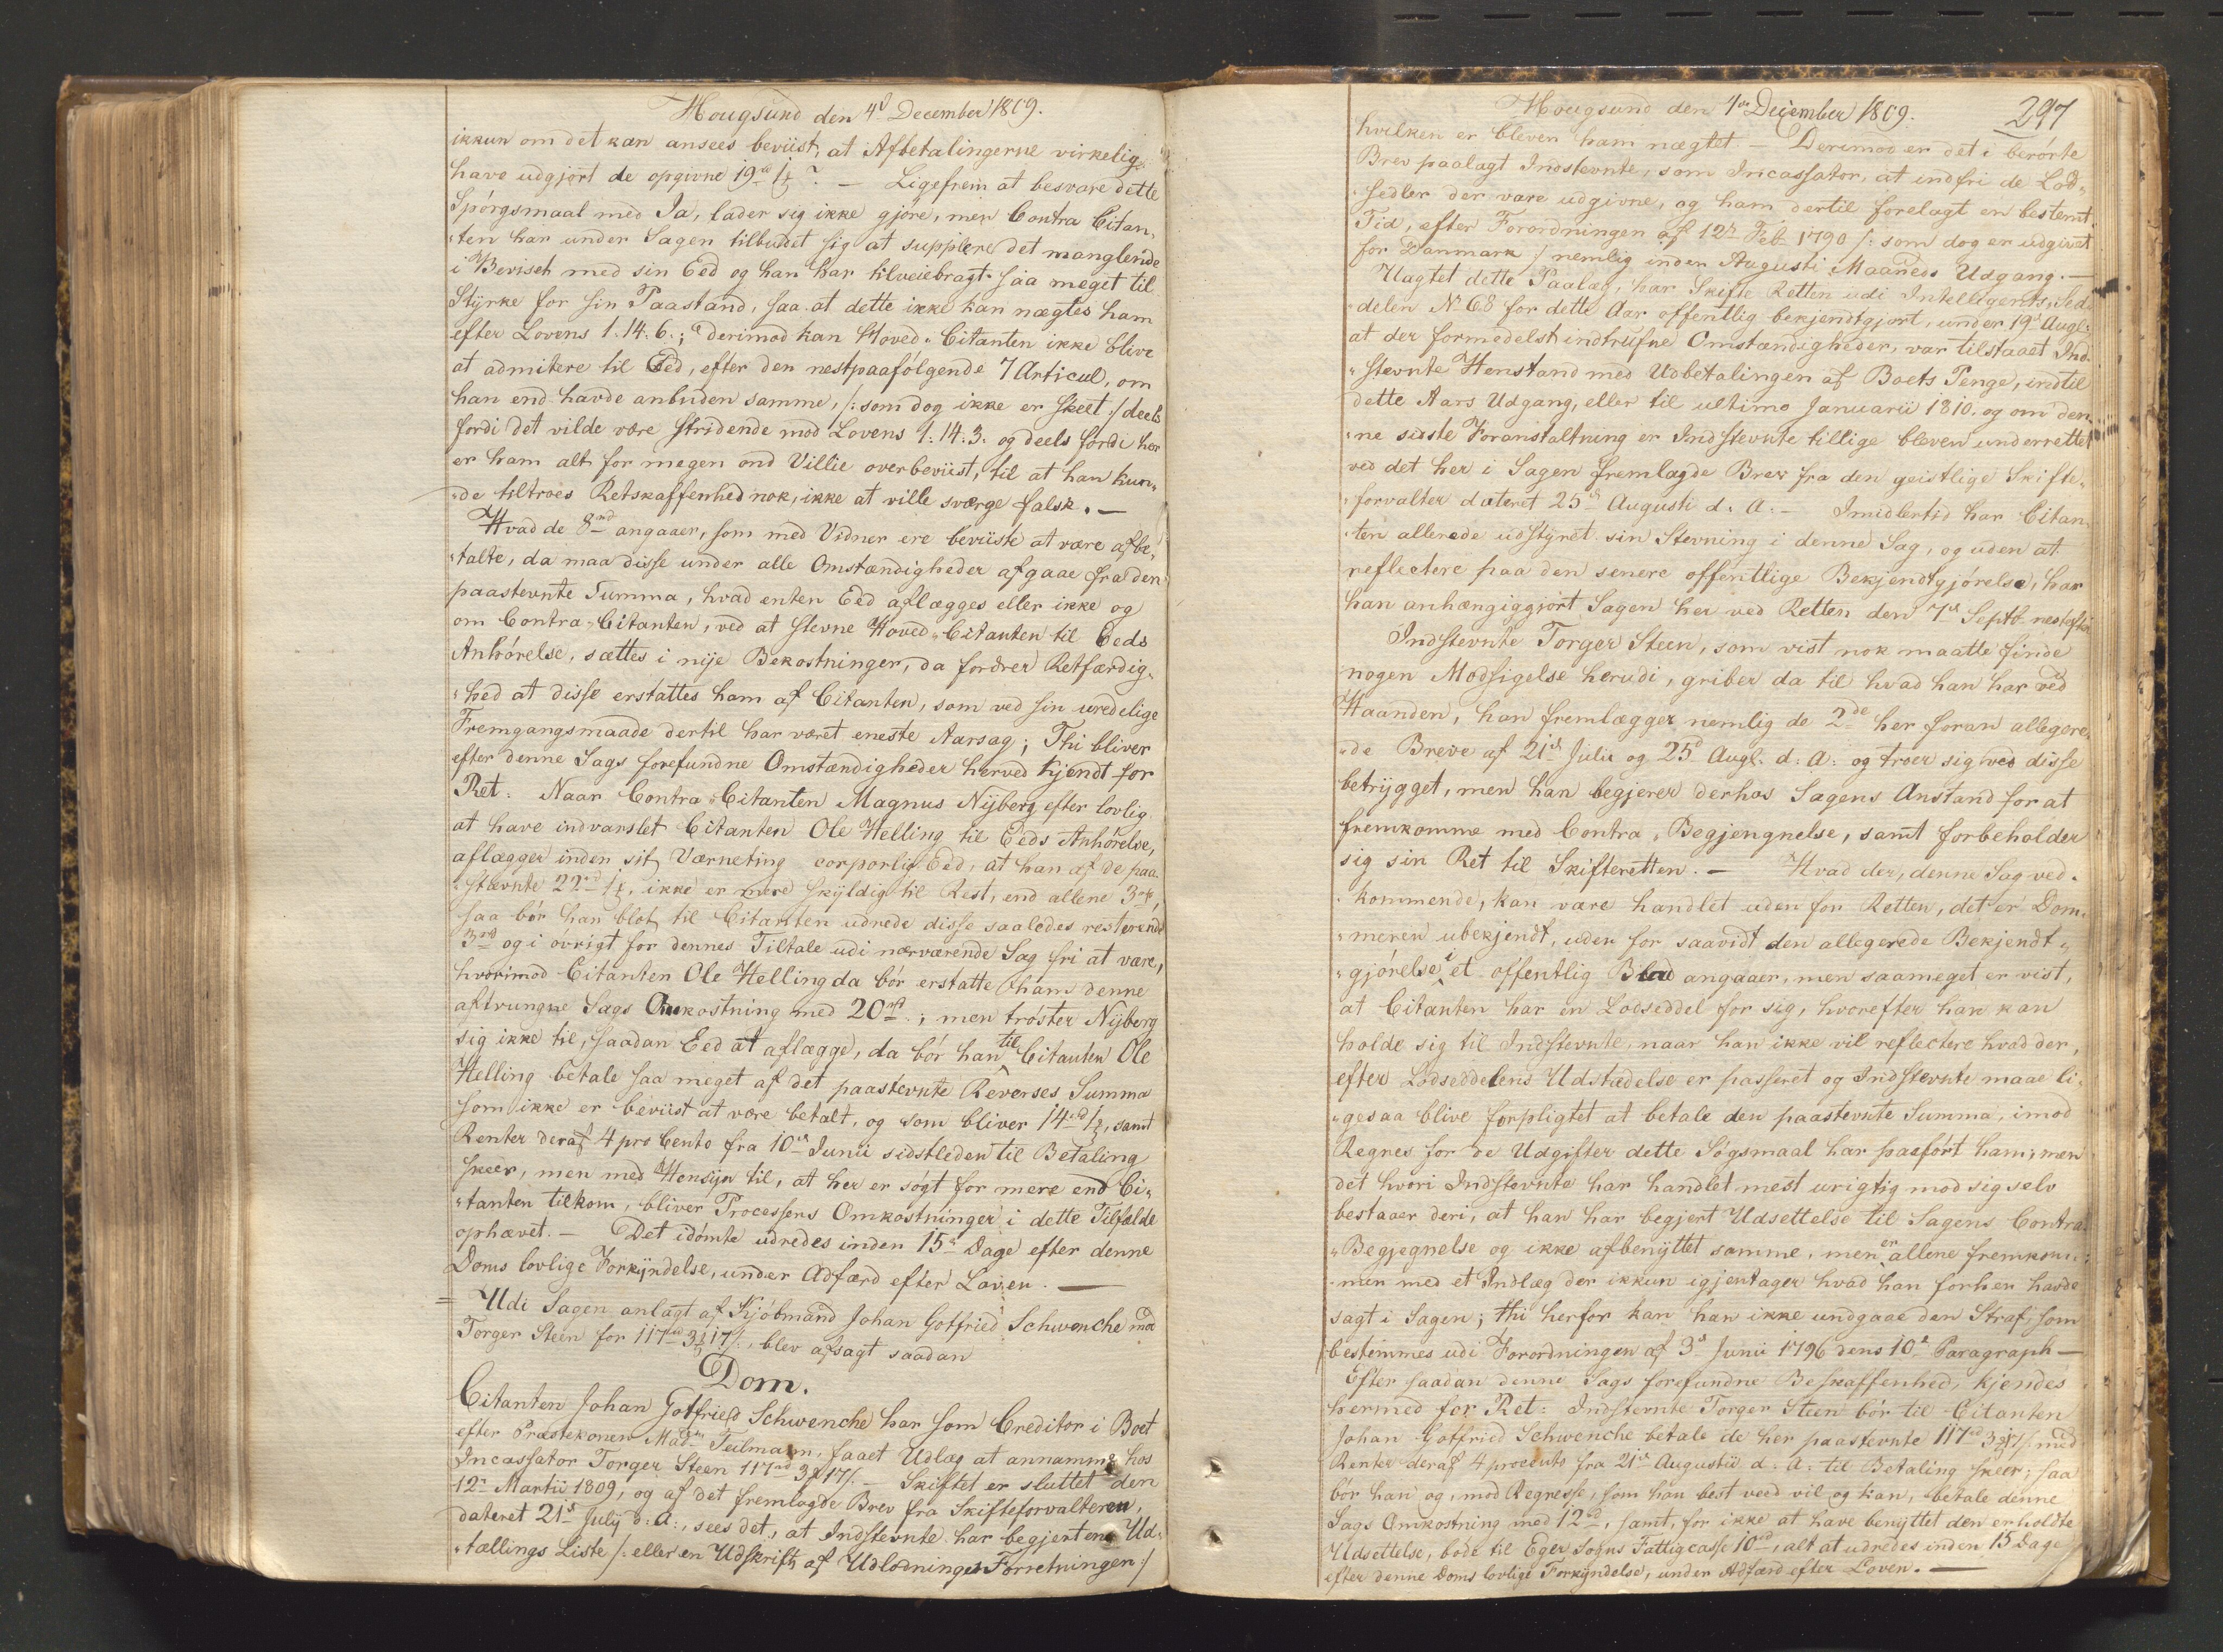 Hougsund den 4d December 1809.
ikkun om det kan ansees beviist, at Afbetalingerne virkelig
have udgjort de opgivne 19rd ½? — Ligefrem at besvare dette
Spörgsmaal med Ja, lader sig ikke gjöre, men Contra Citan„
„ten har under Sagen tilbudet sig at supplere det manglende
i Beviset med sin Eed og han har tilveiebragt saa meget til
Styrke for sin Paastand, saa at dette ikke kan nægtes ham
efter Lovens 1. 14. 6.; derimod kan Hoved-Citanten ikke blive
at admitere til Eed, efter den nestpaafölgende 7 Articul, om
han end havde anbuden samme, /: som dog ikke er skeet :/ deels
fordi det vilde være stridende mod Lovens 1. 14. 3. og deels fordi her
er ham alt for megen ond Villie overbeviist, til at han kun„
„de tiltroes Retskaffenhed nok, ikke at ville sværge falsk. —
Hvad de 8rd angaaer, som med Vidner ere beviiste at være afbe„
„talte, da maa disse under alle Omstændigheder afgaae fra den
paastevnte Summa, hvad enten Eed aflægges eller ikke og
om Contra-Citanten, ved at stevne Hoved-Citanten til Eeds
Anhörelse, sættes i nye Bekostninger, da fordrer Retfærdig„
„hed at disse erstattes ham af Citanten, som ved sin uredelige
Fremgangsmaade dertil har været eneste Aarsag; Thi bliver
efter denne Sags forefundne Omstændigheder herved kjendt for
Ret: Naar Contra-Citanten Magnus Nyberg efter lovlig
at have indvarslet Citanten Ole Helling til Eeds Anhörelse,
aflægger inden sit Værneting corporlig Eed, at han af de paa„
„stevnte 22rd ½, ikke er mere skyldig til Rest, end allene 3rd,
saa bör han blot til Citanten udrede disse saaledes resterende
3rd og i övrigt for dennes Tiltale udi nærværende Sag fri at være,
hvorimod Citanten Ole Helling da bör erstatte ham denne
aftvungne Sags Omkostning med 20rd; men tröster Nyberg
sig ikke til, saadan Eed at aflægge, da bör han til Citanten Ole
Helling betale saa meget af det paastevnte Reverses Summa
som ikke er beviist at være betalt, og som bliver 14rd ½, samt
Renter deraf 4 pro Cento fra 10d Junii sidstleden til Betaling
skeer, men med Hensyn til, at her er sögt for mere end Ci„
„tanten tilkom, bliver Processens Omkostninger i dette Tilfælde
ophævet. — Det idömte udredes inden 15n Dage efter denne
Doms lovlige Forkyndelse, under Adfærd efter Loven. —
Udi Sagen anlagt af Kjöbmand Johan Gotfried Schwenche mod
Torger Steen for 117rd 3 17 /., blev afsagt saadan
Dom.
Citanten Johan Gotfried Schwenche har som Creditor i Boet
efter Præstekonen Madm Teilmann, faaet Udlæg at annamme hos
Incassator Torger Steen 117rd 3 17 /. — Skiftet er sluttet den
12n Martii 1809, og af det fremlagde Brev fra Skifteforvalteren,
dateret 21d July d: A:, sees det, at Indstevnte har begjert en Ud„
„tællings Liste /: eller en Udskrift af Udlodnings Forretningen :/
Hougsund den 4de December 1809. 297
hvilken er bleven ham nægtet — Derimod er det i berörte
Brev paalagt Indstevnte, som Incassator, at indfri de Lod„
„sedler der vare udgivne, og ham dertil forelagt en bestemt
Tid, efter Forordningen af 12n Feb 1790 /: som dog er udgivet
for Danmark :/ nemlig inden Augusti Maaneds Udgang. —
Uagtet dette Paalæg, har Skifte Retten udi Intelligents-Sed„
„delen No 68 for dette Aar offentlig bekjendtgjort, under 19d Augl:
at der formedelst indtrufne Omstændigheder, var tilstaaet Ind„
„stevnte Henstand med Udbetalingen af Boets Penge, indtil
dette Aars Udgang, eller til ultimo Januarii 1810. og om den„
„ne sidste Foranstaltning er Indstevnte tillige bleven underrettet
ved det her i Sagen fremlagde Brev fra den geistlige Skifte„
„forvalter dateret 25d Augusti d: A: — Imidlertid har Citan„
„ten allerede udstyret sin Stevning i denne Sag, og uden at
reflectere paa den senere offentlige Bekjendtgjörelse, har
han anhængiggjort Sagen her ved Retten den 7d Septb nestefter
Indstevnte Torger Steen, som vist nok maatte finde
nogen Modsigelse herudi, griber da til hvad han har ved
Haanden, han fremlægger nemlig de 2de her foran allegere„
„de Breve af 21d Julii og 25d Augl. d: A: og troer sig ved disse
betrygget, men han begjerer derhos Sagens Anstand for at
fremkomme med Contra-Begjengnelse, samt forbeholder
sig sin Ret til Skifteretten. — Hvad der, denne Sag ved„
„kommende, kan være handlet uden for Retten, det er Dom„
„meren ubekjendt, uden for saavidt den allegerede Bekjendt„
„gjörelse i et offentlig Blad angaaer, men saameget er vist,
at Citanten har en Lodseddel for sig, hvorefter han kan
holde sig til Indstevnte, naar han ikke vil reflectere hvad der,
efter Lodseddelens Udstædelse er passeret og Indstevnte maae li„
„gesaa blive forpligtet at betale den paastevnte Summa, imod
Regres for de Udgifter dette Sögsmaal har paafört ham; men
det hvori Indstevnte har handlet mest urigtig mod sig selv
bestaaer deri, at han har begjert Udsettelse til Sagens Contra„
„Begjegnelse og ikke afbenyttet samme, men er allene fremkom„
„men med et Indlæg der ikkun igjentager hvad han forhen havde
sagt i Sagen; thi herfor kan han ikke undgaae den Straf, som
bestemmes udi Forordningen af 3d Junii 1796 dens 10d Paragraph —
Efter saadan denne Sags forefundne Beskaffenhed, kjendes
hermed for Ret: Indstevnte Torger Steen bör til Citanten
Johan Gotfried Schwenche betale de her paastevnte 117rd 3 17 /. med
Renter deraf 4 procento fra 21d Augustii d: A: til Betaling skeer; saa
bör han og, mod Regresse, som han best veed vil og kan, betale denne
Sags Omkostning med 12rd, samt, for ikke at have benyttet den erholdte
Udsettelse, böde til Eger Sogns Fattigcasse 10rd, alt at udredes inden 15 Dage
efter denne Doms lovlige Forkyndelse, under Adfærd efter Loven. —